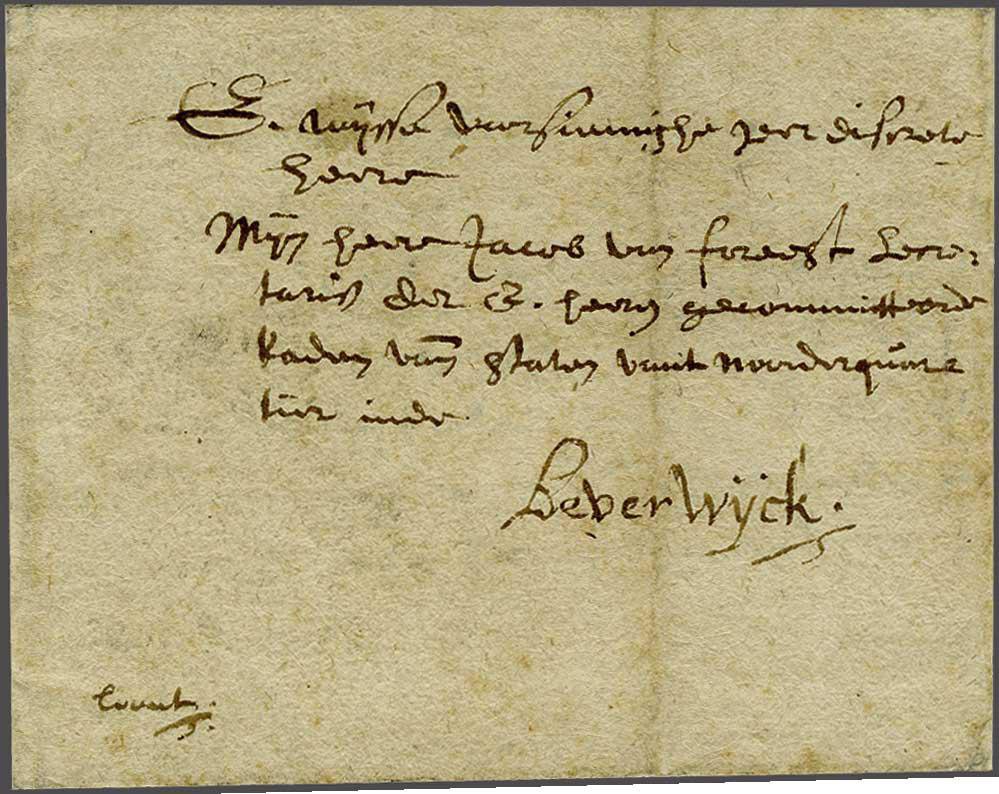 E. wijsse voorsinnighe zeer discrete
heere
Mijn heere Jacob van foreest Secre-
taris der E. heeren gecommitteerde
Raden van staten vuit Noorderquar
tier inde
BeverWijck.